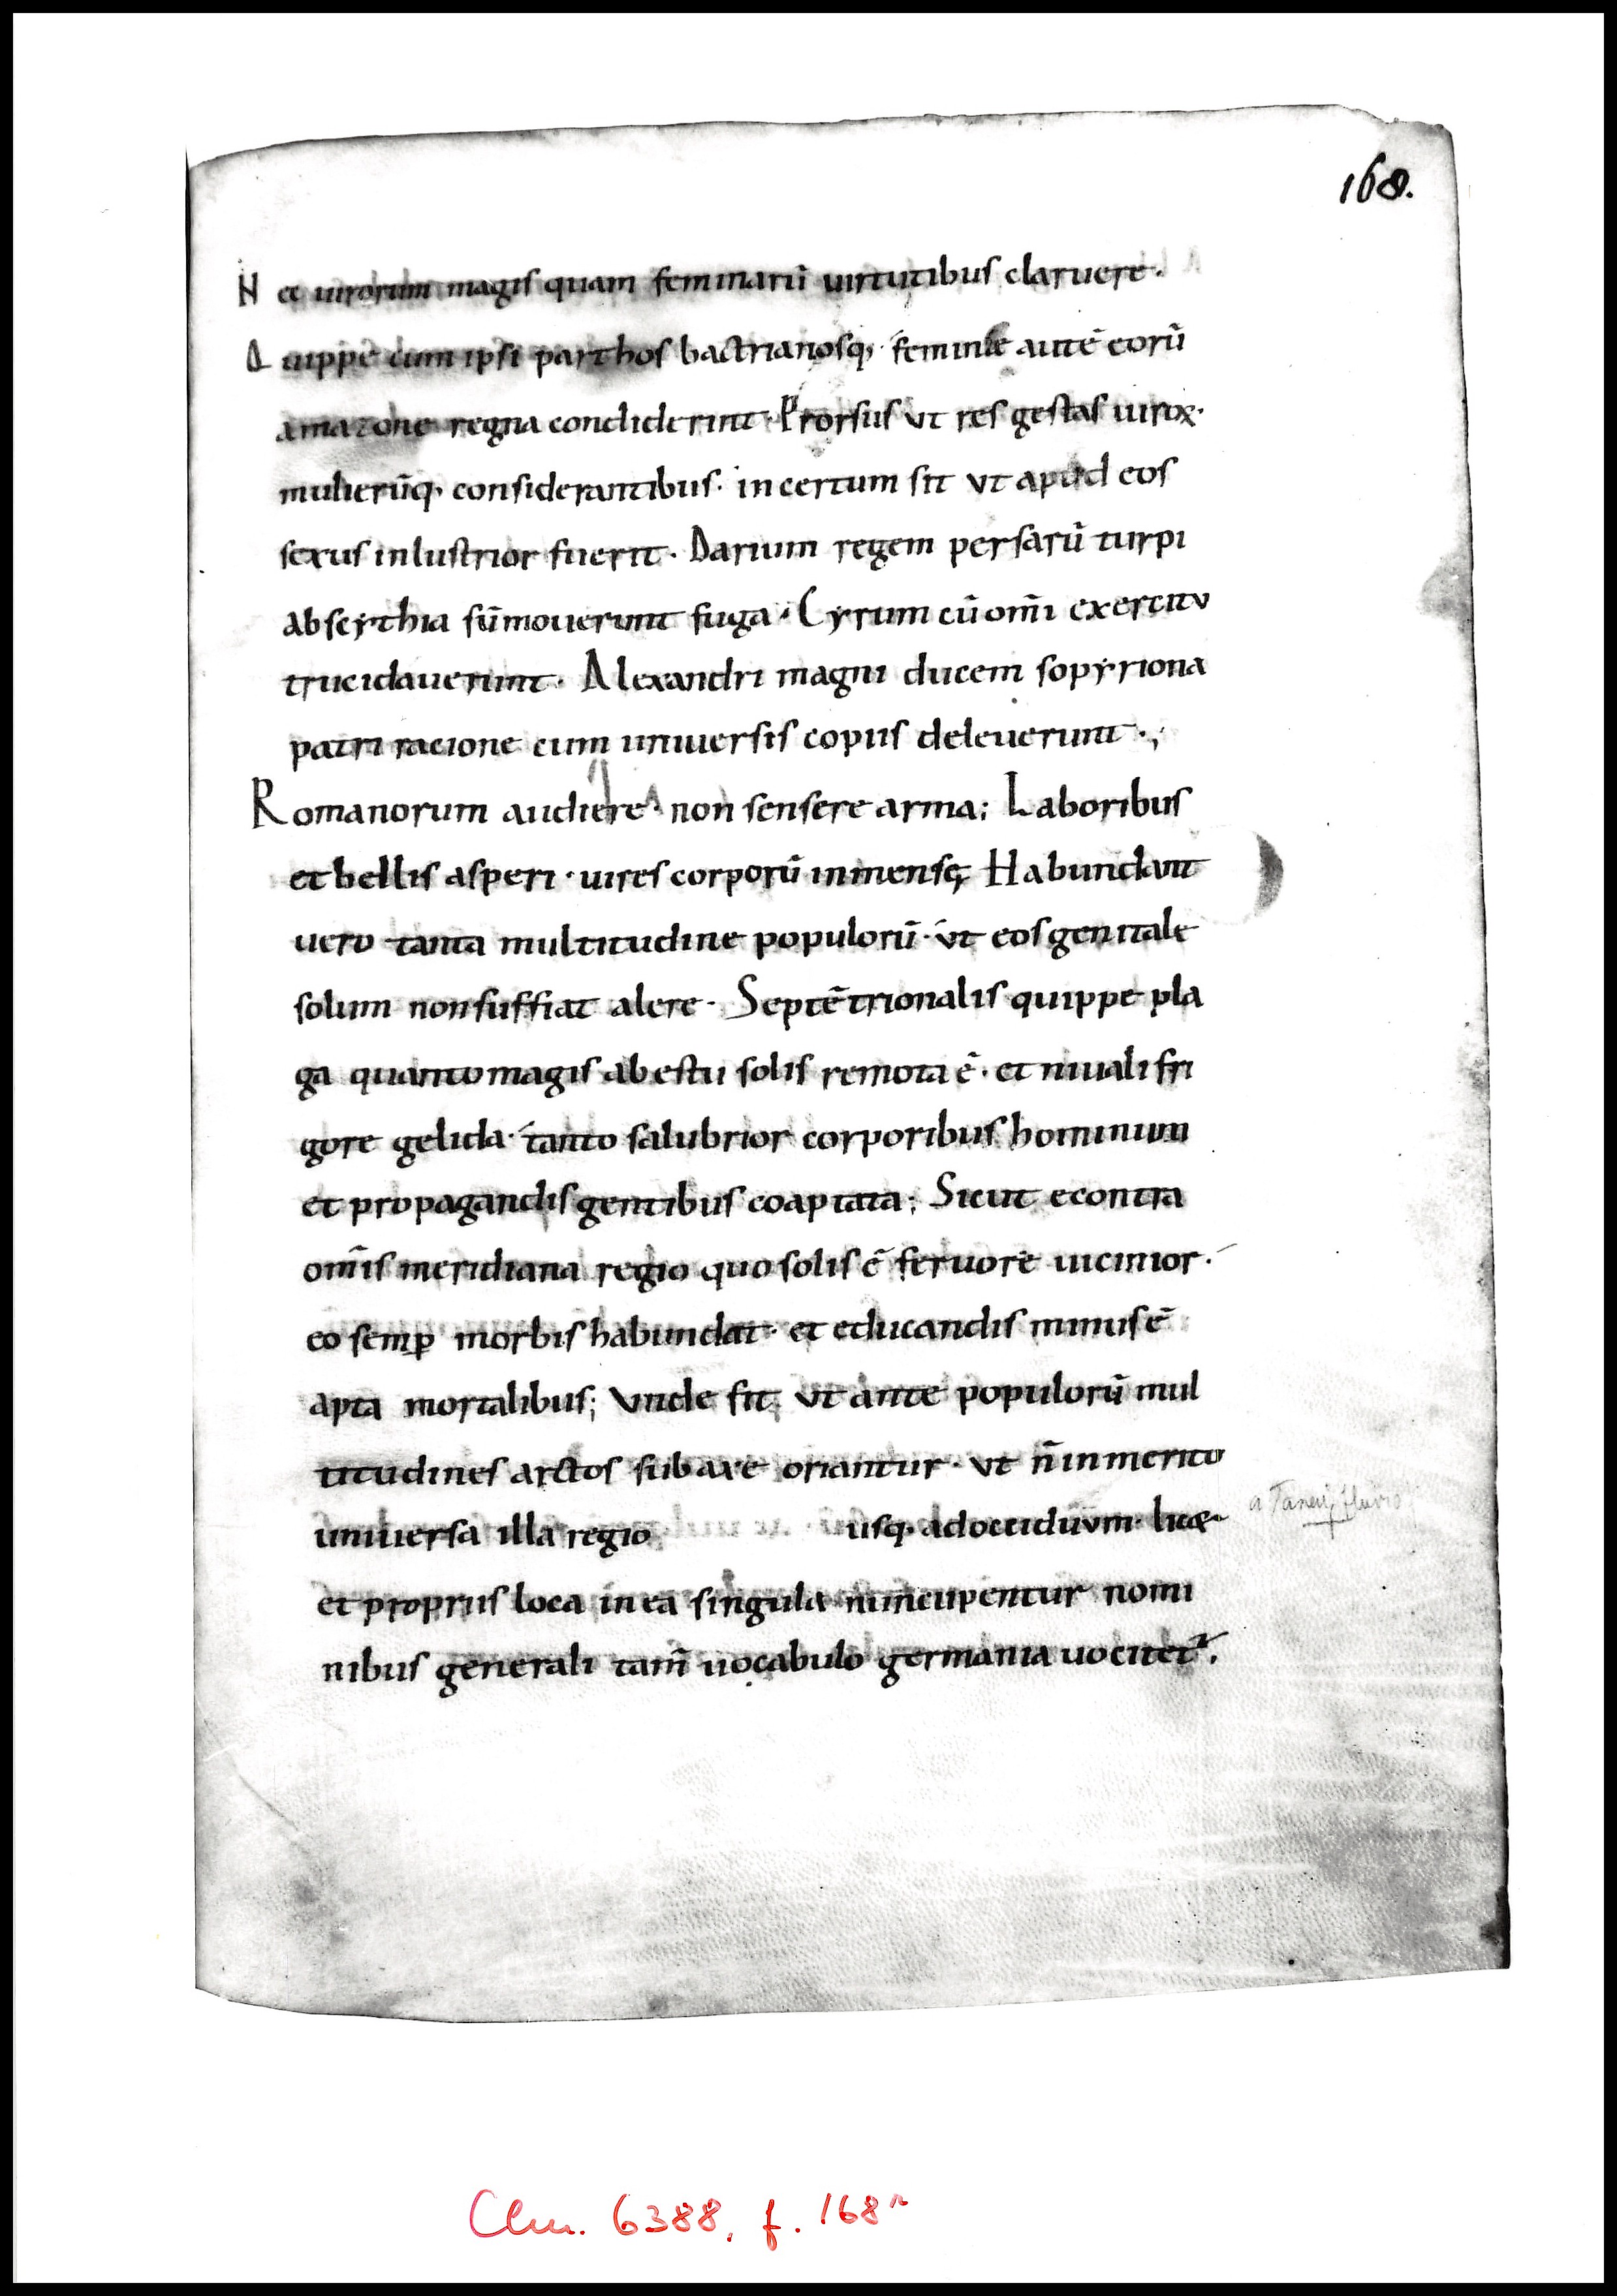 168.
N et uirorum magis quam feminarū uirtutibus claruere·
Q uippe cum ipsi parthos bactrianosq; feminae autē eorū
amazone regna condiderint· Prorsus ut res gestas uiroꝝ·
mulierūq; considerantibus· incertum sit ut apud eos
sexus inlustrior fuerit· Darium regem persarū turpi
abscythia sūmouerunt fuga· Cyrum cū om̄i exercitu
trucidauerunt· Alexandri magni ducem sopyriona
patri racione cum uniuersis copiis deleuerunt·,
Romanorum audiere· non sensere arma; Laboribus
et bellis asperi· uires corporū inmensę; Habundant
uero tanta multitudine populorū· ut eos genitale
solum non sufficiat alere· Septētrionalis quippe pla
ga quanto magis ab estu solis remota ē· et niuali fri
gore gelida· tanto salubrior corporibus hominum
et propagandis gentibus coaptata; Sicut econtra
om̄is meridiana regio quo solis ē feruore uicinior·
eo semꝑ morbis habundat· et educandis minus ē
apta mortalibus; Unde fit; ut ante populorū mul
titudines arctos sub axe oriantur· ut n̄ inmerito
uniuersa illa regio usq; ad occiduum· licæ
a Tanai fluvio
et propriis loca in ea singula nuncupentur nomi
nibus generali tam̄ uocabulo germania uocitet᷑;
Clm. 6388, f. 168ʳ